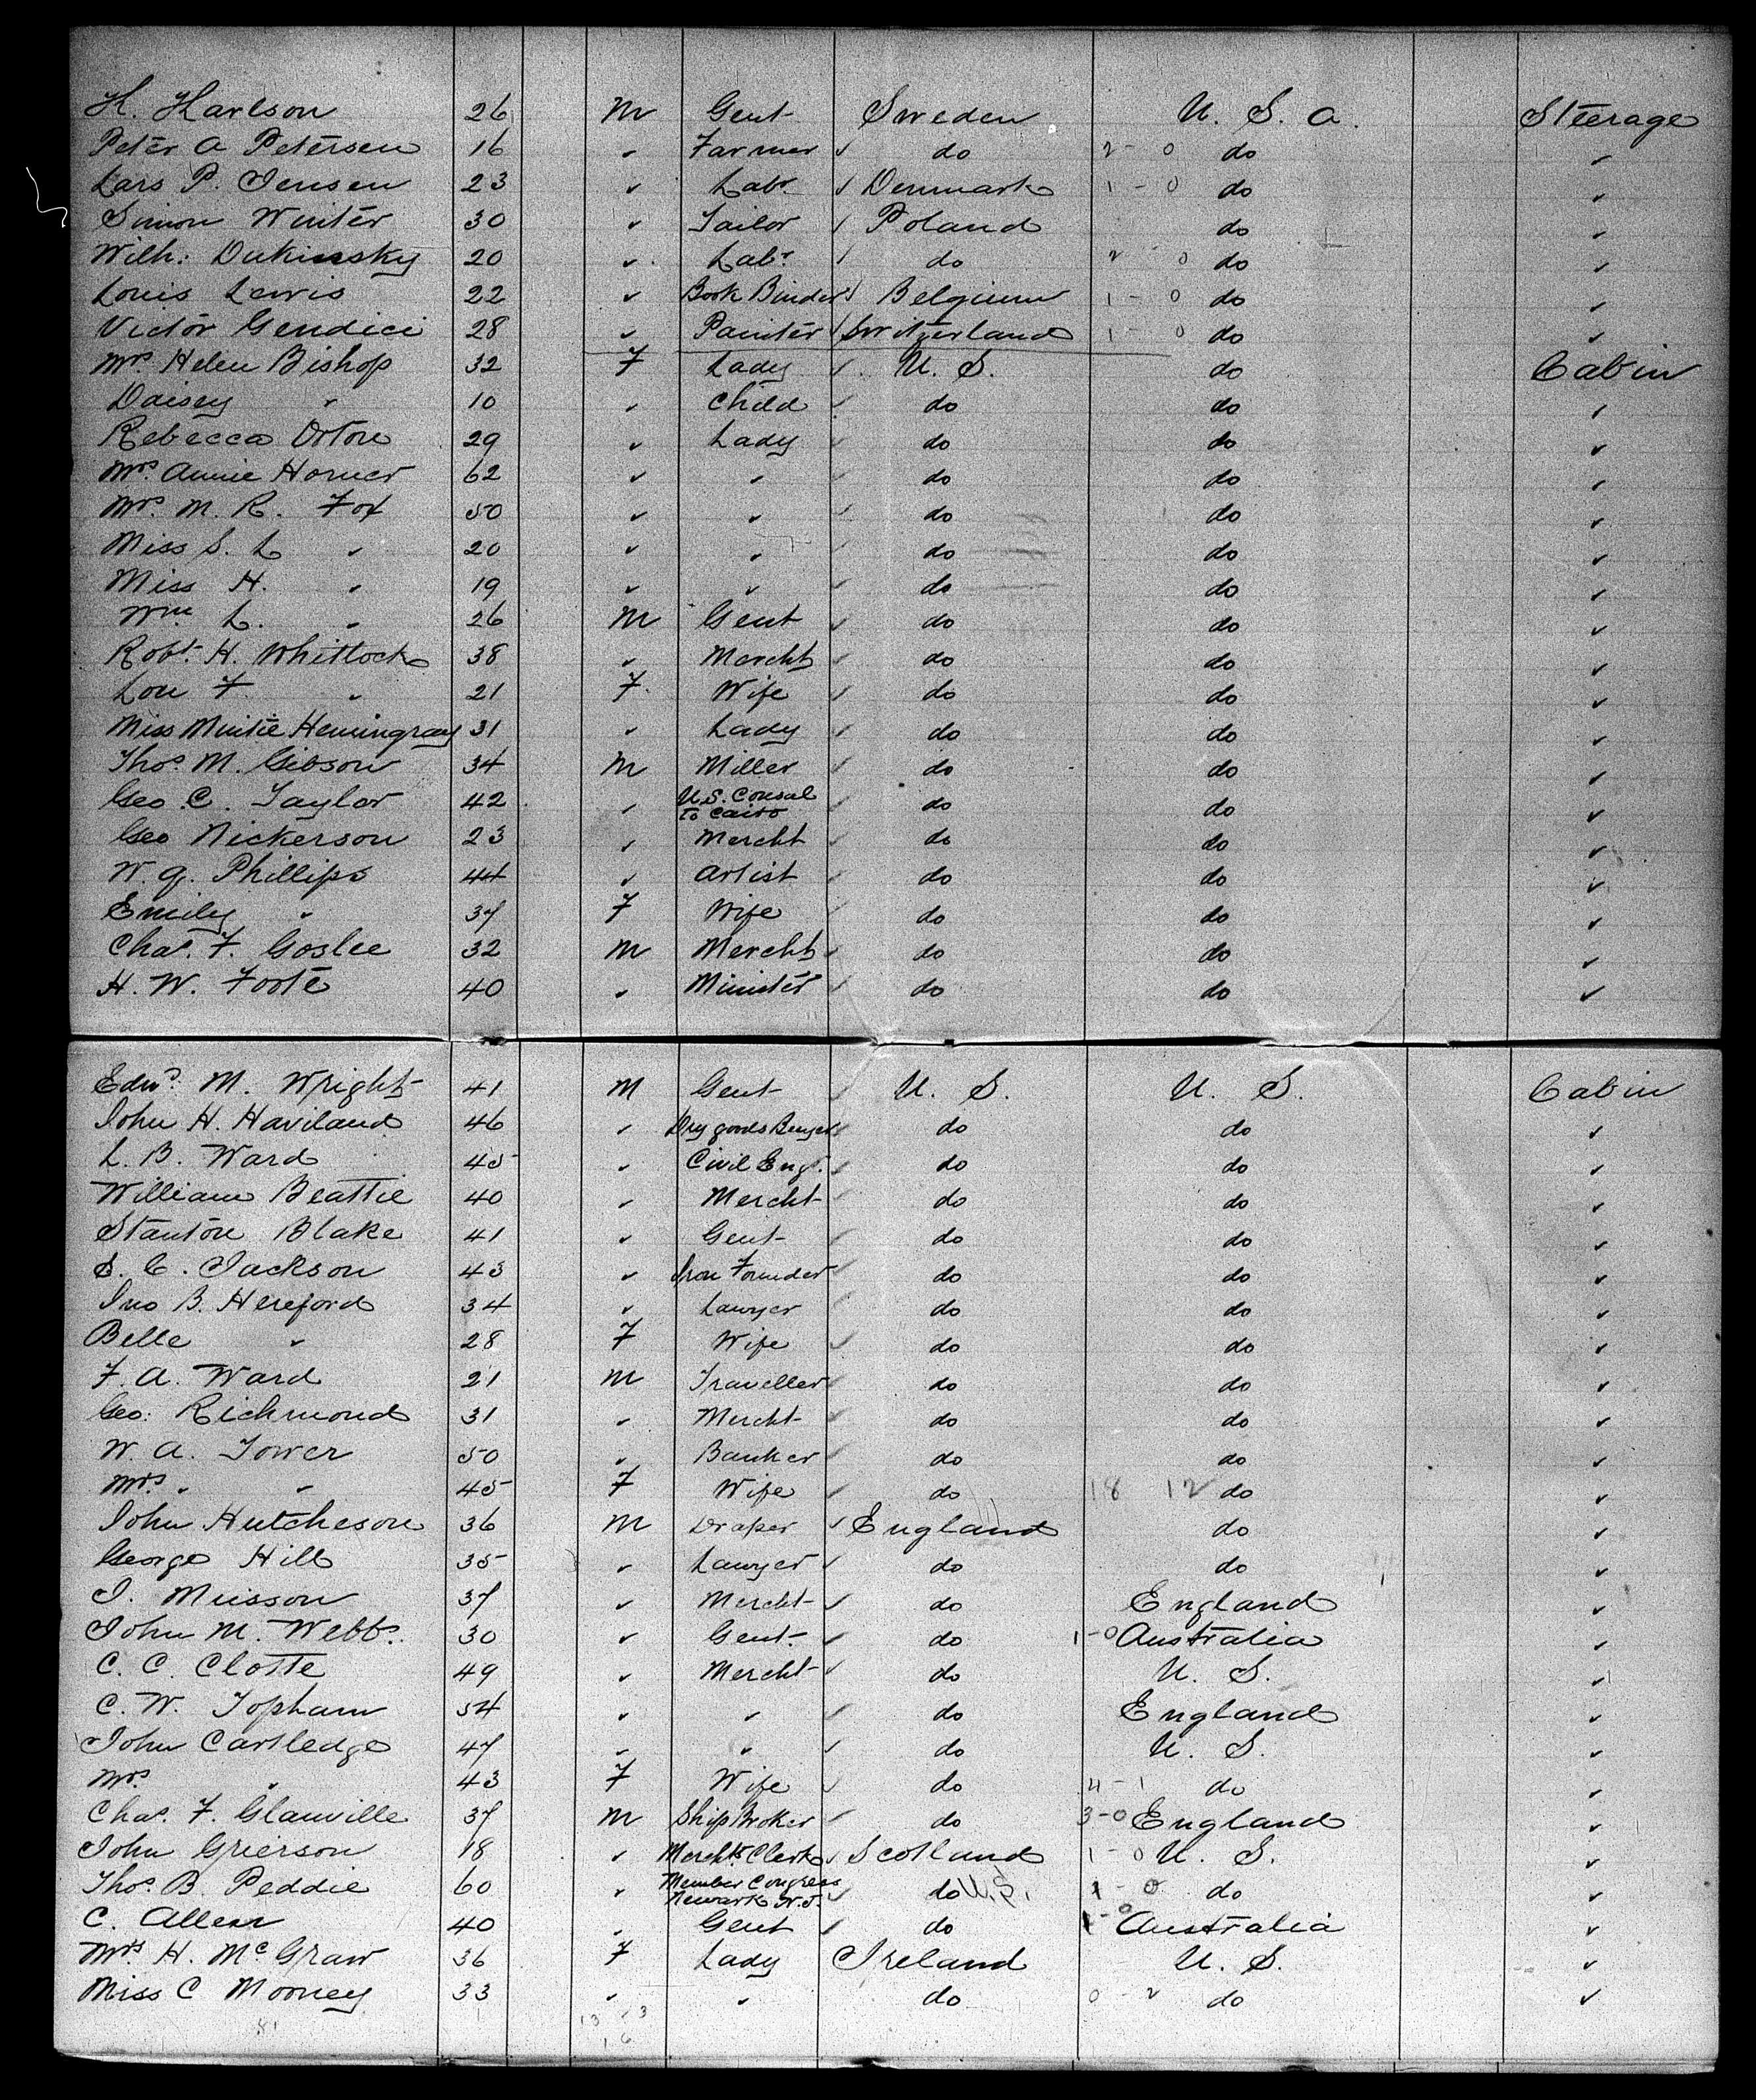 H. Harlson 26 M Gent Sweden U. S. A. Steerage
Peter A Petersen 16 " Farmer ✓ do 2 - 0 do "
Lars P. Jensen 23 " Labr ✓ Denmark 1 - 0 do "
Simon Winter 30 " Tailor ✓ Poland do "
Wilh: Dukinsky 20 " Labr ✓ do 2 - 0 do "
Louis Lewis 22 " Book Binder ✓ Belgium 1 - 0 do "
Victor Gendici 28 " Painter ✓ Switzerland 1 - 0 do "
Mrs Helen Bishop 32 F Lady ✓ U. S. do Cabin
Daisey " 10 " Child ✓ do do "
Rebecca Orton 29 " Lady ✓ do do "
Mrs Annie Horner 62 " " ✓ do do "
Mrs M. R. Fox 50 " " ✓ do do "
Miss S. L " 20 " " ✓ do do "
Miss H. " 19 " " ✓ do do "
Wm L. " 26 M Gent ✓ do do "
Robt H. Whitlock 38 " Mercht ✓ do do "
Lou F " 21 F. Wife ✓ do do "
Miss Mintie Hemingray 31 " Lady ✓ do do "
Thos M. Gibson 34 M Miller ✓ do do "
Geo. C. Taylor 42 " U.S. Consul to Cairo ✓ do do "
Geo Nickerson 23 " Mercht ✓ do do "
W. G. Phillips 44 " Artist ✓ do do "
Emily " 37 F Wife ✓ do do "
Chas. F. Goslee 32 M Mercht ✓ do do "
H. W. Foote 40 " Minister ✓ do do "
Edwd M. Wright 41 M Gent ✓ U. S. U. S. Cabin
John H. Haviland 46 " Dry goods Buyer ✓ do do "
L. B. Ward 45 " Civil Engr. ✓ do do "
William Beattie 40 " Mercht ✓ do do "
Stanton Blake 41 " Gent ✓ do do "
S. C. Jackson 43 " Iron Founder ✓ do do "
Jno B. Hereford 34 " Lawyer ✓ do do "
Belle " 28 F Wife ✓ do do "
F. A. Ward 21 M Traveller ✓ do do "
Geo: Richmond 31 " Mercht ✓ do do "
W. A. Tower 50 " Banker ✓ do do "
Mrs " " 45 F Wife ✓ do 18 12 do "
John Hutcheson 36 M Draper ✓ England do "
George Hill 35 " Lawyer ✓ do do "
J. Musson 37 " Mercht ✓ do England "
John M. Webb. 30 " Gent. ✓ do 1-0 Australia "
C. C. Clotte 49 " Mercht ✓ do U. S. "
C. W. Topham 54 " " ✓ do England "
John Cartledge 47 " " ✓ do U. S. "
Mrs " 43 F Wife ✓ do 4 - 1 do "
Chas. F. Glanville 37 M Ship Broker ✓ do 3-0 England "
John Grierson 18 " Merchts Clerk ✓ Scotland 1 - 0 U. S. "
Thos. B. Peddie 60 " Member Congress Newark N.J. ✓ do U.S. 1 - 0 do "
C. Allen 40 " Gent ✓ do 1-0 Australia "
Mrs H. McGraw 36 F Lady Ireland U. S. "
Miss C Mooney 33 " " do 0 - 2 do "
81 13 13
16